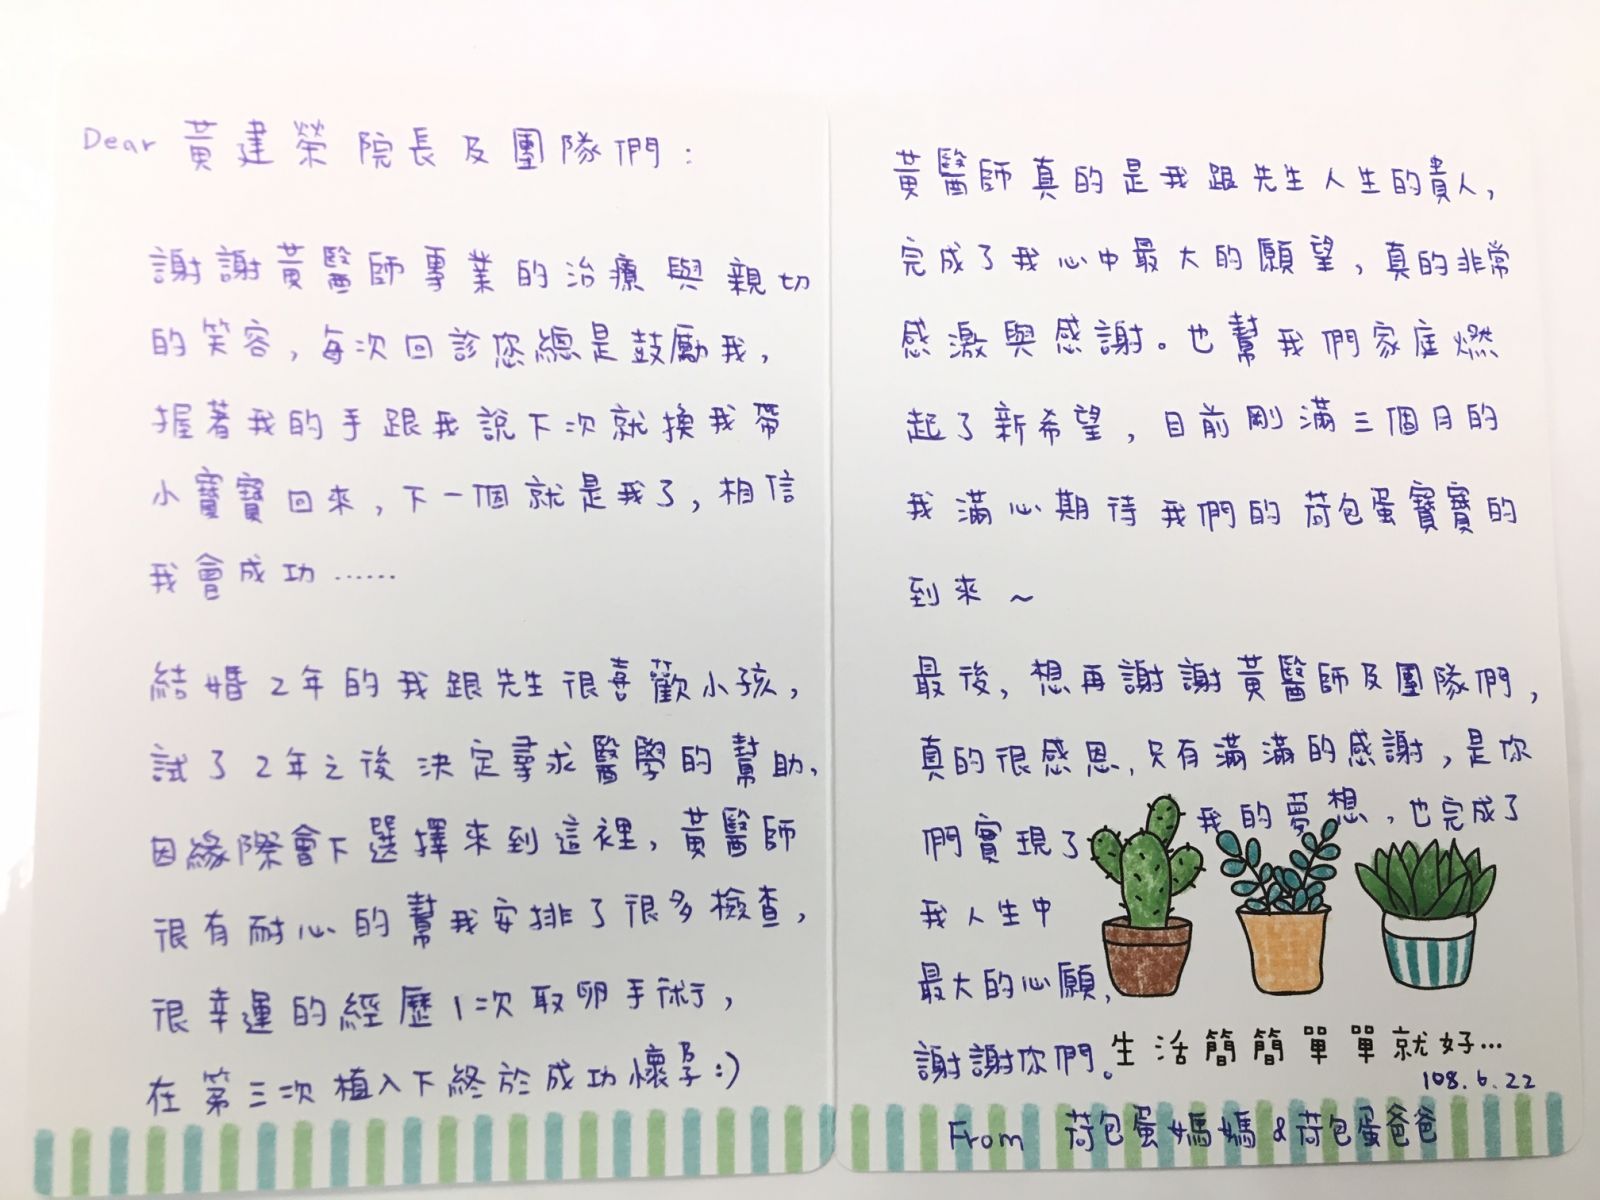 Dear 黃建榮院長及團隊們：
謝謝黃醫師專業的治療與親切
的笑容，每次回診您總是鼓勵我，
握著我的手跟我說下次就換我帶
小寶寶回來，下一個就是我了，相信
我會成功……
結婚2年的我跟先生很喜歡小孩，
試了2年之後決定尋求醫學的幫助，
因緣際會下選擇來到這裡，黃醫師
很有耐心的幫我安排了很多檢查，
很幸運的經歷1次取卵手術，
在第三次植入下終於成功懷孕:)
黃醫師真的是我跟先生人生的貴人，
完成了我心中最大的願望，真的非常
感激與感謝。也幫我們家庭燃
起了新希望，目前剛滿三個月的
我滿心期待我們的荷包蛋寶寶的
到來～
最後，想再謝謝黃醫師及團隊們，
真的很感恩，只有滿滿的感謝，是你
們實現了我的夢想，也完成了
我人生中
最大的心願，
謝謝你們。
生活簡簡單單就好…
108.6.22
From 荷包蛋媽媽&荷包蛋爸爸